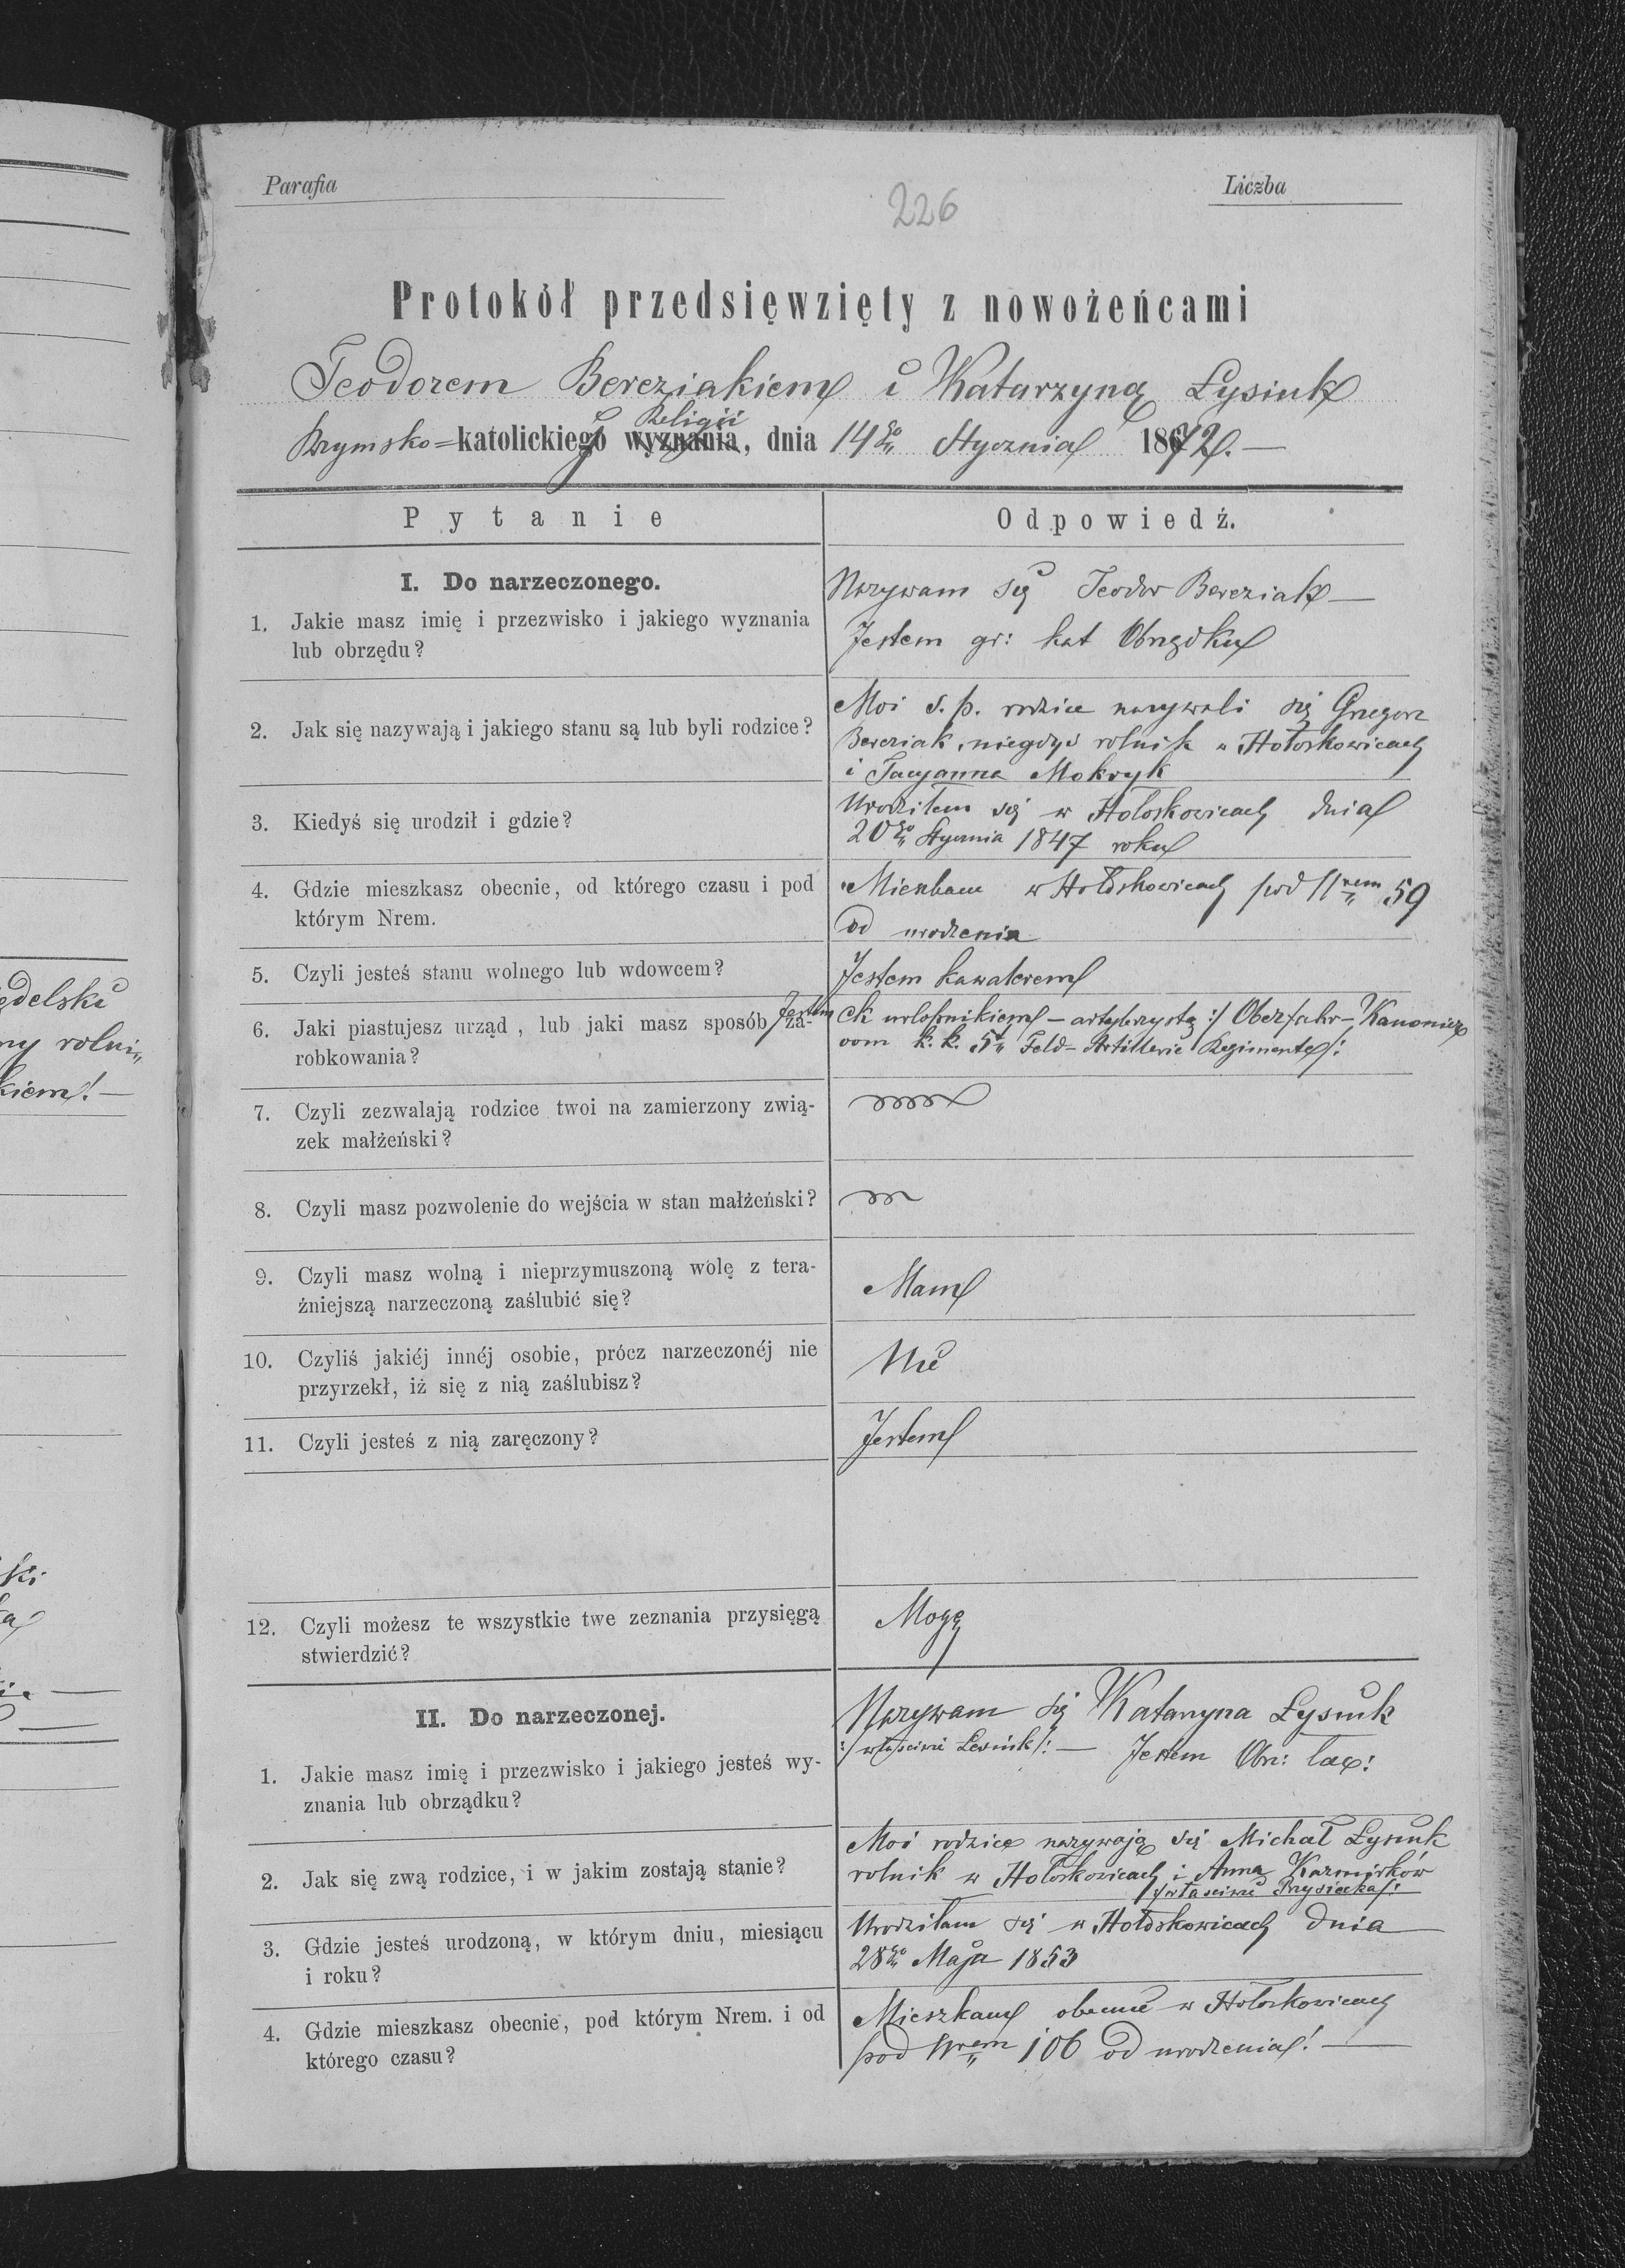 Parafia
Liczba
226
Protokół przedsięwzięty z nowożeńcami
Teodorem Bereziakiem i Katarzyną Łysiuk
Rzymsko=katolickiej Religii wyznania, dnia 14go Stycznia 1872.—
Pytanie
Odpowiedź.
I. Do narzeczonego.
1. Jakie masz imię i przezwisko i jakiego wyznania
lub obrzędu?
Nazywam się Teodor Bereziak—
Jestem gr: kat Obrządku
2. Jak się nazywają i jakiego stanu są lub byli rodzice?
Moi ś. p. rodzice nazywali się Grzegorz
Bereziak, niegdyś rolnik w Hołoskowicach
i Tacyanna Mokryk
3. Kiedyś się urodził i gdzie?
Urodziłem się w Hołoskowicach dnia
20go Stycznia 1847 roku
4. Gdzie mieszkasz obecnie, od którego czasu i pod
którym Nrem.
Mieszkam w Hołoskowicach pod Nrem 59
od urodzenia
5. Czyli jesteś stanu wolnego lub wdowcem?
Jestem kawalerem
6. Jaki piastujesz urząd, lub jaki masz sposób za-
robkowania?
Jestem ck urlopnikiem – artylerzystą :/ Oberfahr-Kanonier
vom k. k. 5ten Feld-Artillerie Regimente /:
7. Czyli zezwalają rodzice twoi na zamierzony zwią-
zek małżeński?
8. Czyli masz pozwolenie do wejścia w stan małżeński?
9. Czyli masz wolną i nieprzymuszoną wolę z tera-
źniejszą narzeczoną zaślubić się?
Mam
10. Czyliś jakiéj innéj osobie, prócz narzeczonéj nie
przyrzekł, iż się z nią zaślubisz?
Nie
11. Czyli jesteś z nią zaręczony?
Jestem
12. Czyli możesz te wszystkie twe zeznania przysięgą
stwierdzić?
Mogę
II. Do narzeczonej.
1. Jakie masz imię i przezwisko i jakiego jesteś wy-
znania lub obrządku?
Nazywam się Katarzyna Łysiuk
:/ właściwie Lesiuk /: — Jestem Obrz: łac:
2. Jak się zwą rodzice, i w jakim zostają stanie?
Moi rodzice nazywają się Michał Łysiuk
rolnik w Hołoskowicach i Anna Kazmirków
:/ właściwie Przysiecka /:
3. Gdzie jesteś urodzoną, w którym dniu, miesiącu
i roku?
Urodziłam się w Hołoskowicach dnia
28go Maja 1853
4. Gdzie mieszkasz obecnie, pod którym Nrem. i od
którego czasu?
Mieszkam obecnie w Hołoskowicach
pod Nrem 106 od urodzenia! —